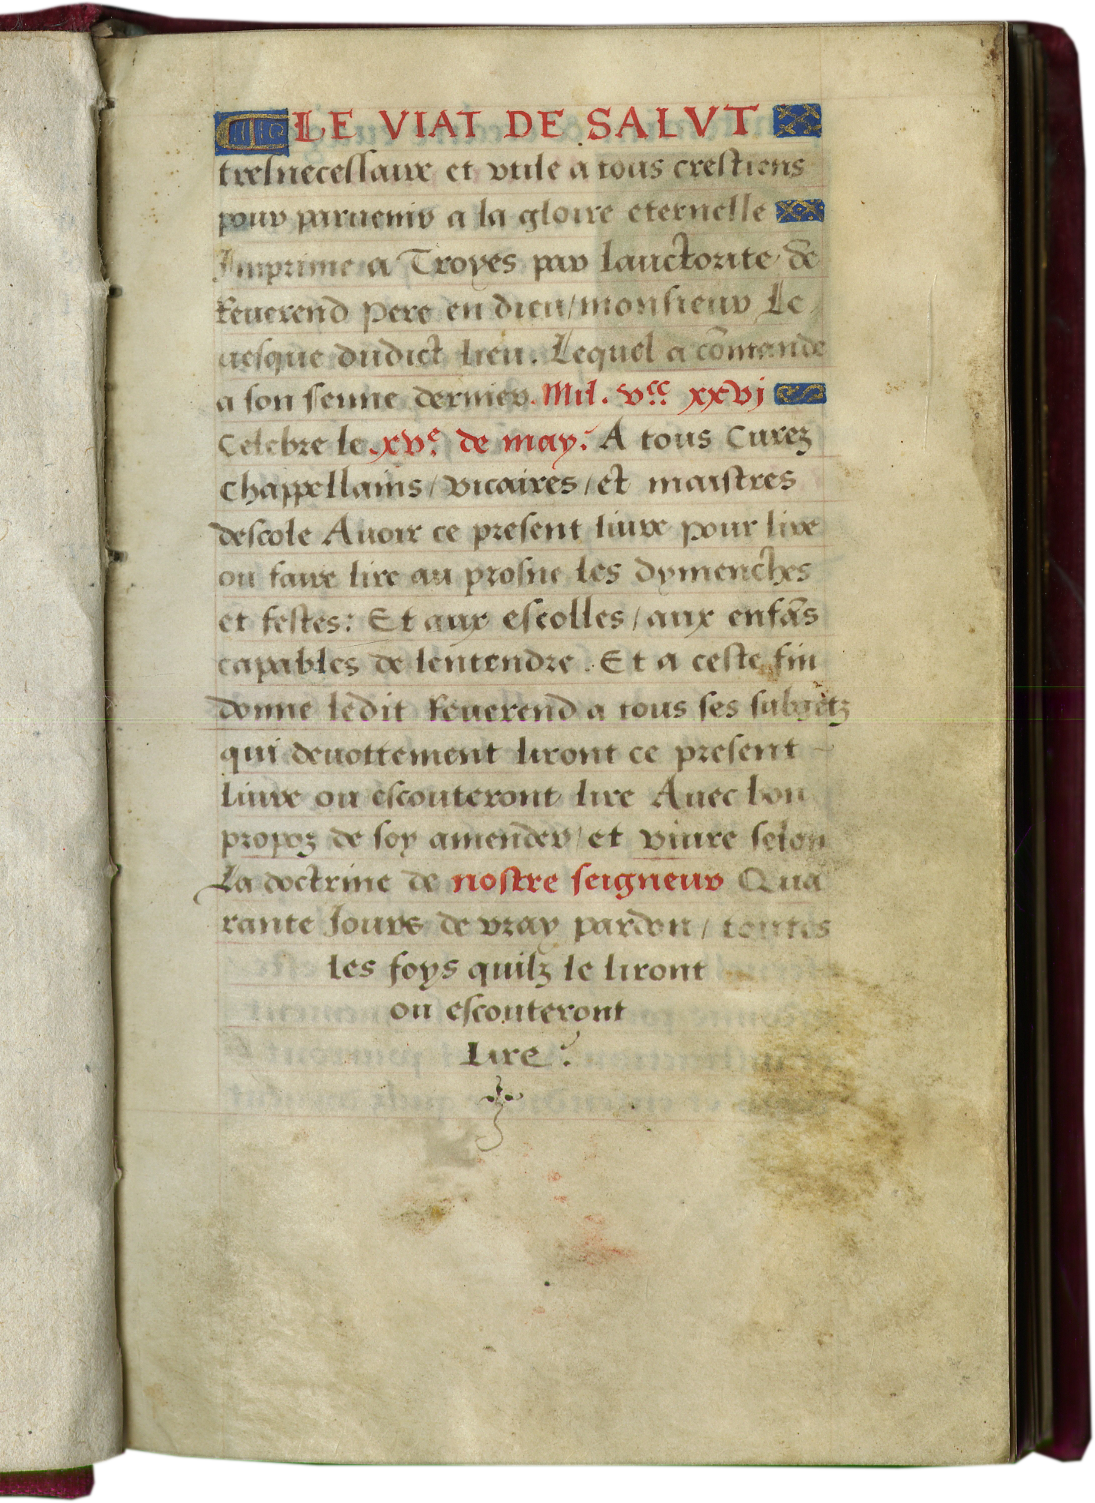 LE VIAT DE SALVT
tresnecessaire et vtile a tous crestiens
pour paruenir a la gloire eternelle
Imprime a Troyes par lauctorite de
Reuerend pere en dieu/monsieur Le
uesque dudict lieu. Lequel a cōmande
a son senne dernier. Mil. vcc xxvj
Celebre le xve. de may. A tous Curez
Chappellains/vicaires/et maistres
descole Auoir ce present liure pour lire
ou faire lire au prosne les dymenches
et festes: Et aux escolles/aux enfās
capables de lentendre. Et a ceste fin
donne ledit Reuerend a tous ses subgetz
qui deuottement liront ce present
liure ou escouteront lire Auec bon
propoz de soy amender/et viure selon
La doctrine de nostre seigneur Qua
rante Jours de vray pardon/toutes
les foys quilz le liront
ou escouteront
Lire.